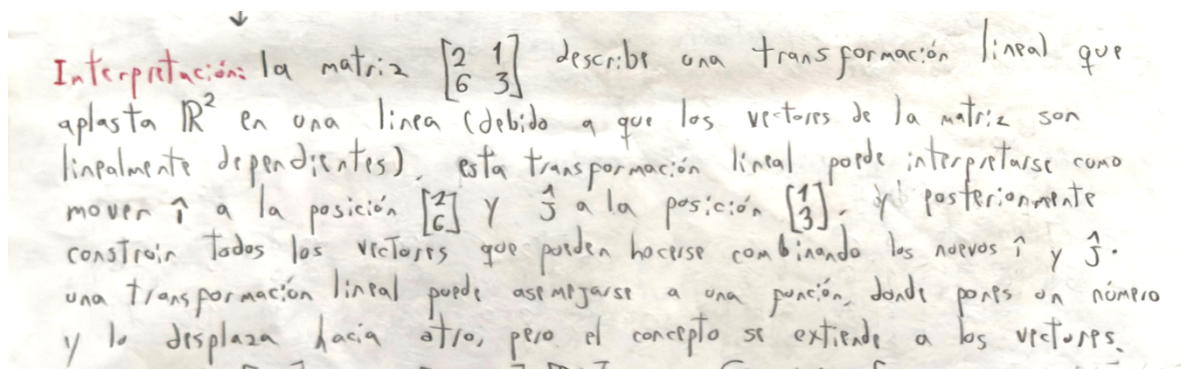 Interpretación: la matriz [2 1; 6 3] describe una transformación lineal que
aplasta ℝ² en una linea (debido a que los vectores de la matriz son
linealmente dependientes). esta transformación lineal puede interpretarse como
mover î a la posición [2; 6] y ĵ a la posición [1; 3]. y posteriormente
construir todos los vectores que pueden hacerse combinando los nuevos î y ĵ.
una transformación lineal puede asemejarse a una función, donde pones un número
y lo desplaza hacia otro, pero el concepto se extiende a los vectores.